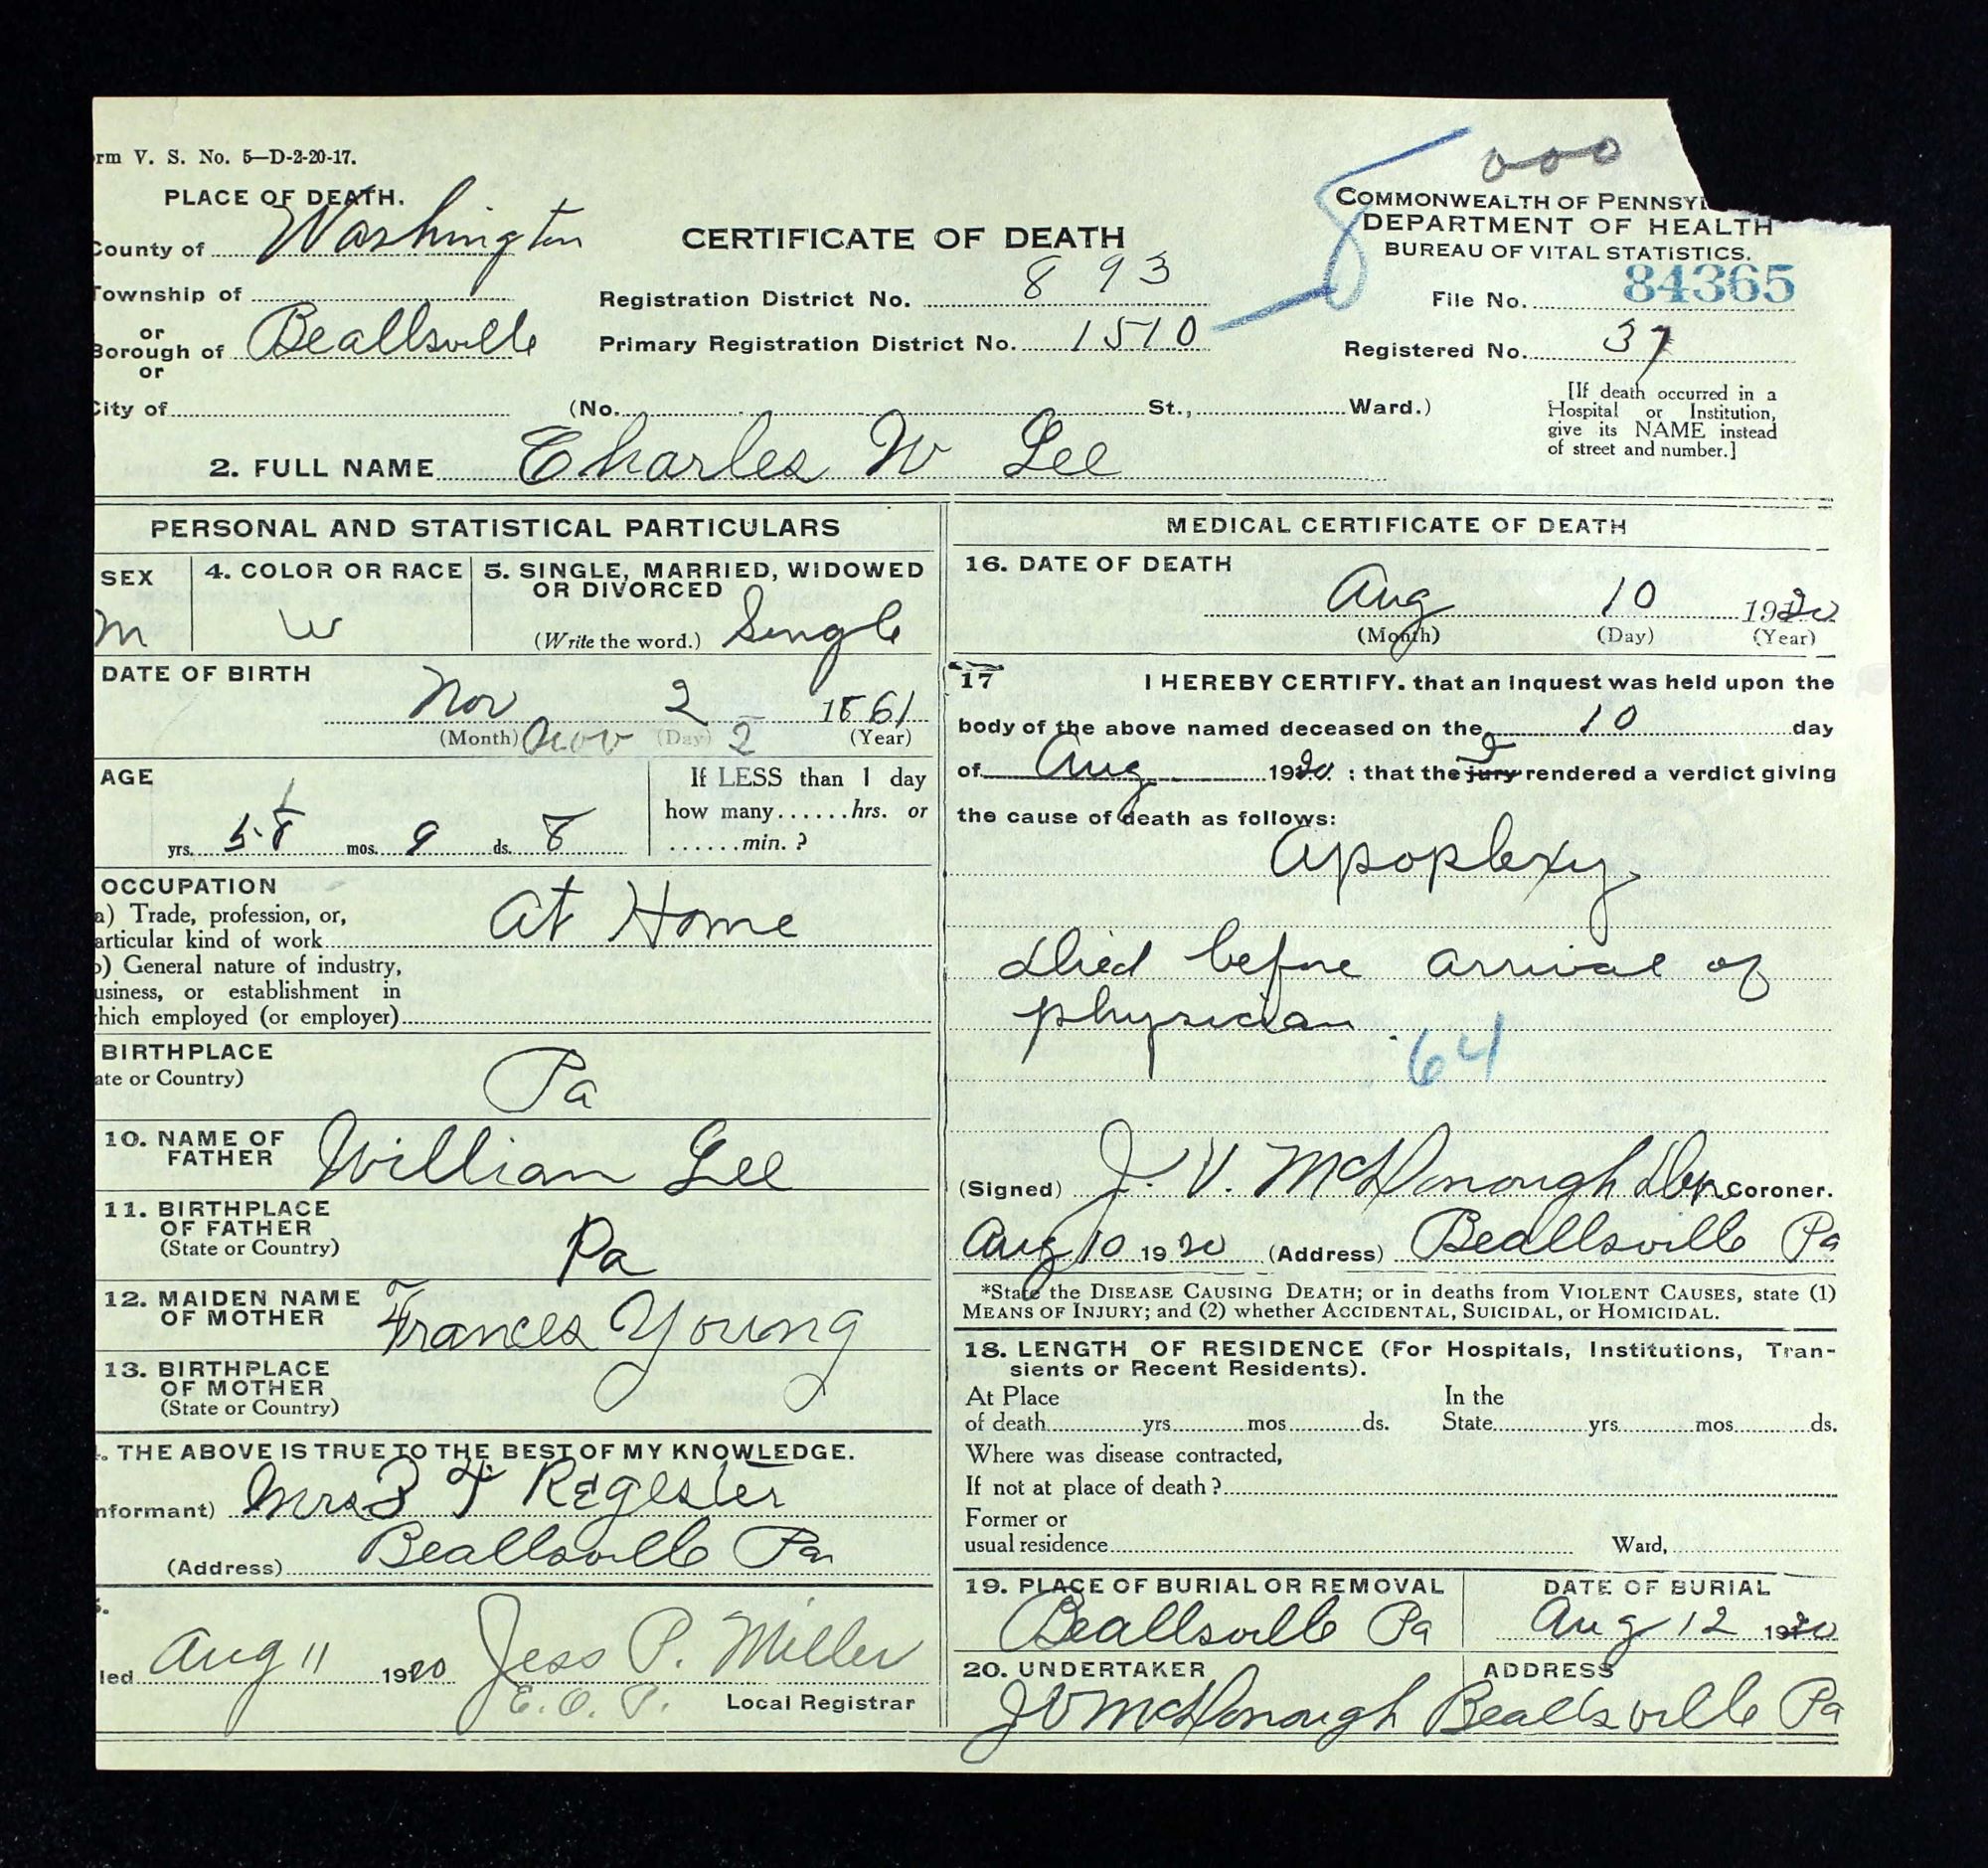 rm V. S. No. 5—D-2-20-17.
PLACE OF DEATH.
County of Washington
Township of
or
Borough of Beallsville
or
City of
CERTIFICATE OF DEATH
Registration District No. 893
Primary Registration District No. 1510
(No. St., Ward.)
000
COMMONWEALTH OF PENNSYL
DEPARTMENT OF HEALTH
BUREAU OF VITAL STATISTICS.
File No. 84365
Registered No. 37
[If death occurred in a
Hospital or Institution,
give its NAME instead
of street and number.]
2. FULL NAME Charles W Lee
PERSONAL AND STATISTICAL PARTICULARS
SEX
M
4. COLOR OR RACE
W
5. SINGLE, MARRIED, WIDOWED
OR DIVORCED
(Write the word.) Single
DATE OF BIRTH
Nov 2 1861
(Month) Nov (Day) 2 (Year)
AGE
yrs. 58 mos. 9 ds. 8
If LESS than 1 day
how many......hrs. or
......min. ?
OCCUPATION
a) Trade, profession, or,
articular kind of work At Home
b) General nature of industry,
usiness, or establishment in
hich employed (or employer)
BIRTHPLACE
ate or Country) Pa
10. NAME OF
FATHER William Lee
11. BIRTHPLACE
OF FATHER
(State or Country) Pa
12. MAIDEN NAME
OF MOTHER Frances Young
13. BIRTHPLACE
OF MOTHER
(State or Country)
. THE ABOVE IS TRUE TO THE BEST OF MY KNOWLEDGE.
nformant) Mrs F Regester
(Address) Beallsville Pa
led Aug 11 1920 Jess P. Miller
Local Registrar
MEDICAL CERTIFICATE OF DEATH
16. DATE OF DEATH
Aug 10 1920
(Month) (Day) (Year)
17 I HEREBY CERTIFY. that an inquest was held upon the
body of the above named deceased on the 10 day
of Aug 1920 ; that the jury I rendered a verdict giving
the cause of death as follows:
Apoplexy
Died before arrival of
physician.
64
(Signed) J. V. McDonough Dep Coroner.
Aug 10 1920 (Address) Beallsville Pa
*State the DISEASE CAUSING DEATH; or in deaths from VIOLENT CAUSES, state (1)
MEANS OF INJURY; and (2) whether ACCIDENTAL, SUICIDAL, or HOMICIDAL.
18. LENGTH OF RESIDENCE (For Hospitals, Institutions, Tran-
sients or Recent Residents).
At Place In the
of death yrs. mos. ds. State yrs. mos. ds.
Where was disease contracted,
If not at place of death ?
Former or
usual residence Ward,
19. PLACE OF BURIAL OR REMOVAL
Beallsville Pa
DATE OF BURIAL
Aug 12 1920
20. UNDERTAKER ADDRESS
J V McDonough Beallsville Pa